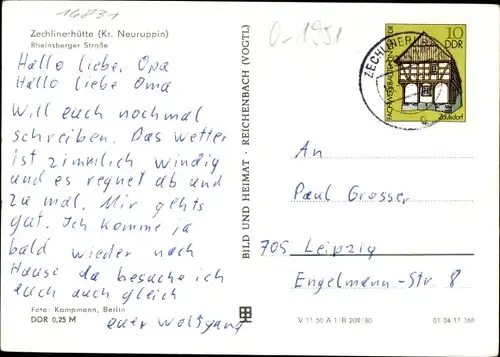 16831
0-1951
Zechlinerhütte (Kr. Neuruppin)
Rheinsberger Straße
Hallo liebe, Opa
Hallo liebe Oma
Will euch nochmal
schreiben. Das Wetter
ist zimmlich windig
und es regnet ab und
zu mal. Mir gehts
gut. Ich komme ja
bald wieder nach
Hause da besuche ich
euch auch gleich
euer Wolfgang
Foto: Kampmann, Berlin
DDR 0,25 M
BILD UND HEIMAT · REICHENBACH (VOGTL)
10
DDR
FACHWERKBAUTEN IN DER DDR
Zaulsdorf
An
Paul Grosser
705 Leipzig
Engelmann-Str. 8
V 11 50 A 1/B 209/80
01 04 11 368